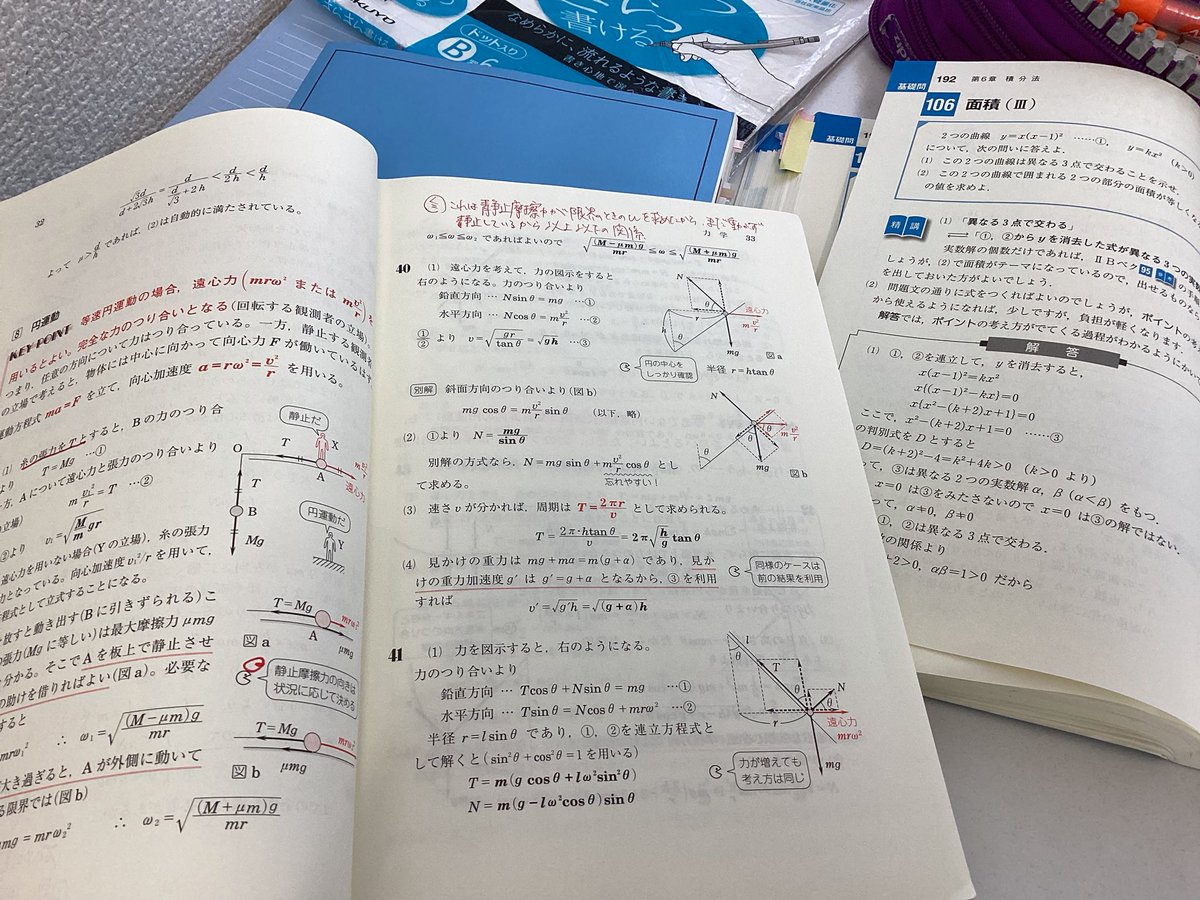 書ける
KOKUYO
ドット入り
B
なめらかに、流れるような書き
32
√3d/(d+2√3h) = d/(d/√3+2h) < d/2h < d/h
よって μ>d/h であれば,(2)は自動的に満たされている。
8 円運動
KEY POINT 等速円運動の場合,遠心力(mrω² または mv²/r)を
用いるとよい。完全な力のつり合いとなる(回転する観測者の立場)。
つまり,任意の方向について力はつり合っている。一方,静止する観測者
の立場で考えると,物体には中心に向かって向心力Fが働いているはず
運動方程式 ma=F を立て,向心加速度 a=rω²=v²/r を用いる。
(1) 糸の張力をTとすると,Bの力のつり合
より T=Mg …①
一方,Aについて遠心力と張力のつり合いより
m v₁²/r=T …②
②より v₁=√(M/m gr)
遠心力を用いない場合(Yの立場),糸の張力
力となっている。向心加速度 v₁²/r を用いて,
程式として立式することになる。
放すと動き出す(Bに引きずられる)こ
張力(Mgに等しい)は最大摩擦力 μmg
分かる。そこでAを板上で静止させ
の助けを借りればよい(図a)。必要な
すると
mrω₁² ∴ ω₁=√((M-μm)g/mr)
大き過ぎると,Aが外側に動いて
る限界では(図b)
μmg=mrω₂² ∴ ω₂=√((M+μm)g/mr)
静止だ
X
O T A
遠心力
T
B
Mg
円運動だ
Y
T=Mg mrω₁²
A μmg
図a
静止摩擦力の向きは
状況に応じて決める
T=Mg mrω₂²
μmg
図b
これは静止摩擦力が限界のときのωを求めたから,まだ動かず
静止しているから以上以下の関係
力学 33
ω₁≦ω≦ω₂ であればよいので √((M-μm)g/mr)≦ω≦√((M+μm)g/mr)
40 (1) 遠心力を考えて,力の図示をすると
右のようになる。力のつり合いより
鉛直方向 … N sinθ=mg …①
水平方向 … N cosθ=m v²/r …②
①/② より v=√(gr/tanθ)=√gh …③
N
θ
遠心力
m v²/r
h
r
θ
mg
図a
円の中心を
しっかり確認
半径 r=h tanθ
別解 斜面方向のつり合いより(図b)
mg cosθ=m v²/r sinθ (以下,略)
(2) ①より N=mg/sinθ
別解の方式なら,N=mg sinθ+m v²/r cosθ とし
て求める。 忘れやすい!
N
m v²/r
θ
mg
図b
(3) 速さvが分かれば,周期は T=2πr/v として求められる。
T=2π·h tanθ/v=2π√(h/g) tanθ
(4) 見かけの重力は mg+mα=m(g+α) であり,見か
けの重力加速度 g′ は g′=g+α となるから,③を利用
すれば v′=√g′h=√(g+α)h
同様のケースは
前の結果を利用
41 (1) 力を図示すると,右のようになる。
力のつり合いより
鉛直方向 … T cosθ+N sinθ=mg …①
水平方向 … T sinθ=N cosθ+mrω² …②
半径 r=l sinθ であり,①,②を連立方程式と
して解くと(sin²θ+cos²θ=1を用いる)
T=m(g cosθ+lω²sin²θ)
N=m(g-lω²cosθ)sinθ
l
θ
T
θ
N
r
θ
遠心力
mrω²
mg
力が増えても
考え方は同じ
基礎問
基礎問 192 第6章 積分法
106 面積(Ⅲ)
2つの曲線 y=x(x-1)² ……①, y=kx² (k>0)
について,次の問いに答えよ.
(1) この2つの曲線は異なる3点で交わることを示せ.
(2) この2つの曲線で囲まれる2つの部分の面積が等しくな
の値を求めよ.
精講
(1) 「異なる3点で交わる」
⇌「①,②からyを消去した式が異なる3つの実数
実数解の個数だけであれば,ⅡBベク95の手
しょうが,(2)で面積がテーマになっているので,出せるものなら
を出しておいた方がよいでしょう.
(2) 問題文の通りに式をつくればよいのでしょうが,ポイントの考
から使えるようになれば,少しですが,負担が軽くなります.
解答では,ポイントの考え方がでてくる過程がわかるようにかいて
解答
(1) ①,②を連立して,yを消去すると,
x(x-1)²=kx²
x{(x-1)²-kx}=0
x{x²-(k+2)x+1}=0
ここで,x²-(k+2)x+1=0 ……③
の判別式をDとすると
D=(k+2)²-4=k²+4k>0 (k>0 より)
って,③は異なる2つの実数解α,β(α<β)をもつ.
x=0 は③をみたさないので x=0 は③の解ではない.
って,α≠0,β≠0
①,②は異なる3点で交わる.
の関係より
+2>0,αβ=1>0 だから